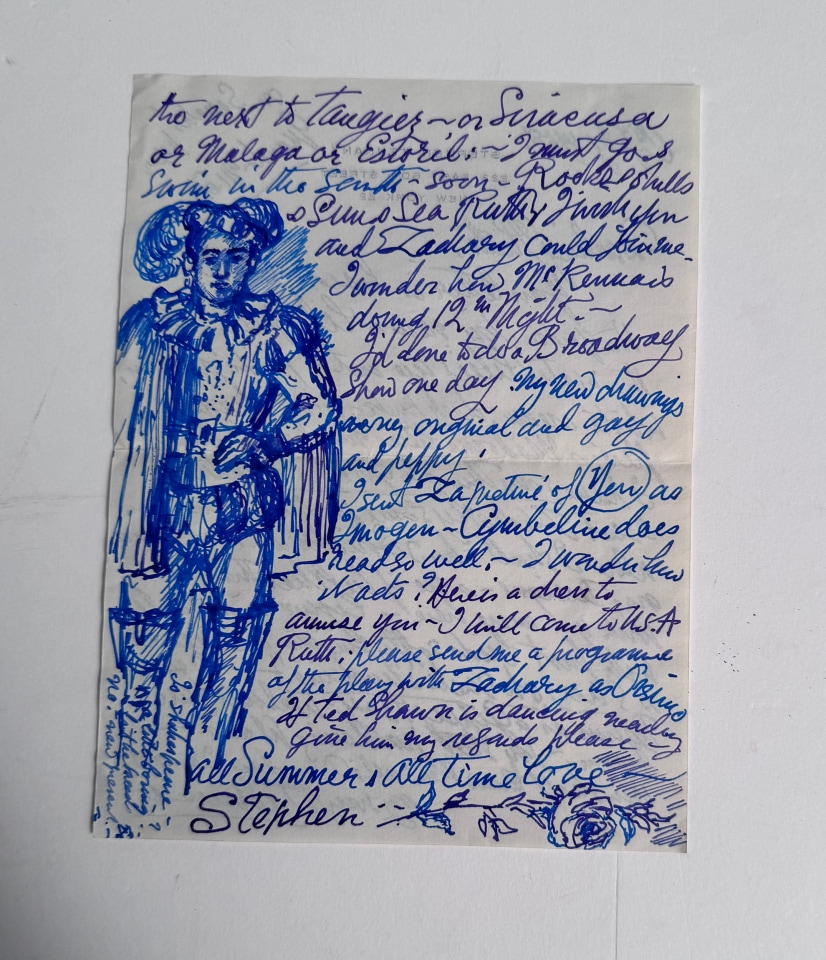 tho next to Tangier - or Siracusa
or Malaga or Estoril. - I must go &
Swim in the South - soon - Rocks & shells
& Sun & Sea Ruth I wish you
and Zachary could join me -
I wonder how Mc Kenna is
doing 12th Night. -
I'd love to do a Broadway
Show one day. My new drawings
original and gay
and peppy!
I sent Za picture of (You) as
Imogen - Cymbeline does
read so well. - I wonder how
it acts? Here is a dress to
amuse you - I will come to U.S.A
Ruth; please send me a programme
of the play with Zachary as Orsino
If Ted Shawn is dancing nearby
give him my regards please -
all Summer & All Time Love
Stephen
Is Shakespeare -